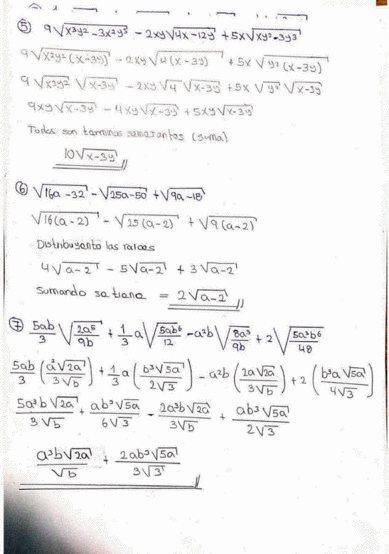 ⑤ 9√(x³y² - 3x²y³) - 2xy√(4x - 12y) + 5x√(xy² - 3y³)
9√(x²y²(x-3y)) - 2xy√(4(x-3y)) + 5x√(y²(x-3y))
9√(x²y²) √(x-3y) - 2xy√4 √(x-3y) + 5x√(y²) √(x-3y)
9xy√(x-3y) - 4xy√(x-3y) + 5xy√(x-3y)
Todos son terminos semejantes (suma)
10√(x-3y)
⑥ √(16a-32) - √(25a-50) + √(9a-18)
√(16(a-2)) - √(25(a-2)) + √(9(a-2))
Distribuyento las raices
4√(a-2) - 5√(a-2) + 3√(a-2)
Sumando se tiene = 2√(a-2)
⑦ 5ab/3 √(2a⁵/9b) + 1/3 a√(5ab⁶/12) - a²b√(8a³/9b) + 2√(5a³b⁶/48)
5ab/3 (a²√(2a)/3√b) + 1/3 a(b³√(5a)/2√3) - a²b(2a√(2a)/3√b) + 2(b³a√(5a)/4√3)
5a³b√(2a)/3√b + ab³√(5a)/6√3 - 2a³b√(2a)/3√b + ab³√(5a)/2√3
a³b√(2a)/√b + 2ab³√(5a)/3√3